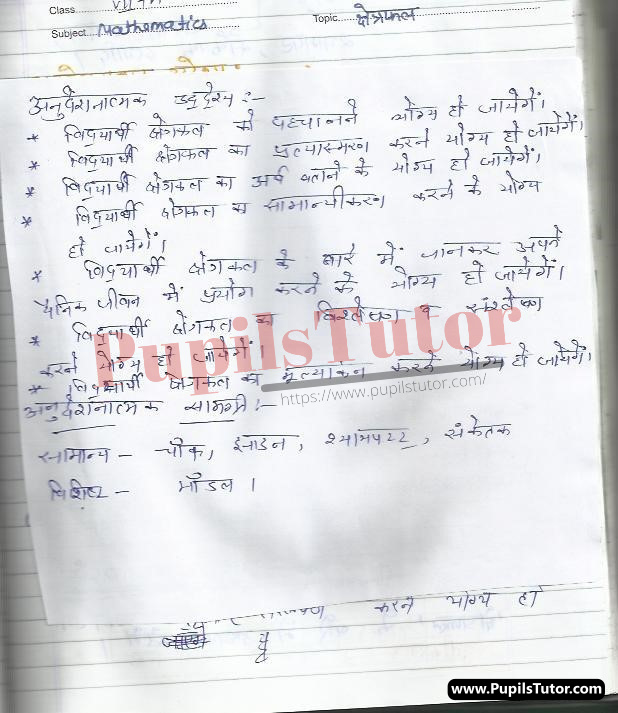 Class
Subject Mathematics Topic क्षेत्रफल
अनुदेशनात्मक उद्देश्य :-
* विद्यार्थी क्षेत्रफल को पहचानने योग्य हो जायेगें।
* विद्यार्थी क्षेत्रफल का प्रत्यास्मरण करने योग्य हो जायेगें।
* विद्यार्थी क्षेत्रफल का अर्थ बताने के योग्य हो जायेगें।
* विद्यार्थी क्षेत्रफल का सामान्यीकरण करने के योग्य
हो जायेगें।
* विद्यार्थी क्षेत्रफल के बारे में जानकर अपने
दैनिक जीवन में प्रयोग करने के योग्य हो जायेगें।
* विद्यार्थी क्षेत्रफल का विश्लेषण व संश्लेषण
करने योग्य हो जायेगें।
* विद्यार्थी क्षेत्रफल का मूल्यांकन करने योग्य हो जायेगें।
PupilsTutor
https://www.pupilstutor.com/
अनुदेशनात्मक सामग्री :-
सामान्य - चॉक, झाडन, श्यामपट्ट, संकेतक
विशिष्ट - मॉडल।
करने योग्य हो
www.PupilsTutor.com